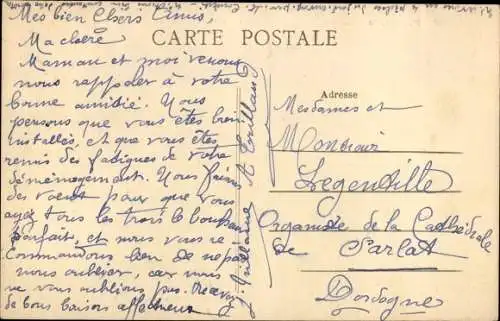 Mes bien Chers Amis,
CARTE POSTALE
Ma chère
Maman et moi venons
nous rappeler à votre
bonne amitié. Nous
pensons que vous êtes bien
installés, et que vous êtes
remis des fatigues de votre
déménagement. Nous faisons
des vœux pour que vous
ayez tous les trois le bonheur
parfait, et nous vous re
commandons bien de ne pas
nous oublier, car nous
ne vous oublions pas. Recevez
de bons baisers affectueux
Adresse
Mesdames et
Monsieur
Legentille
Organiste de la Cathédrale
de Sarlat
Dordogne